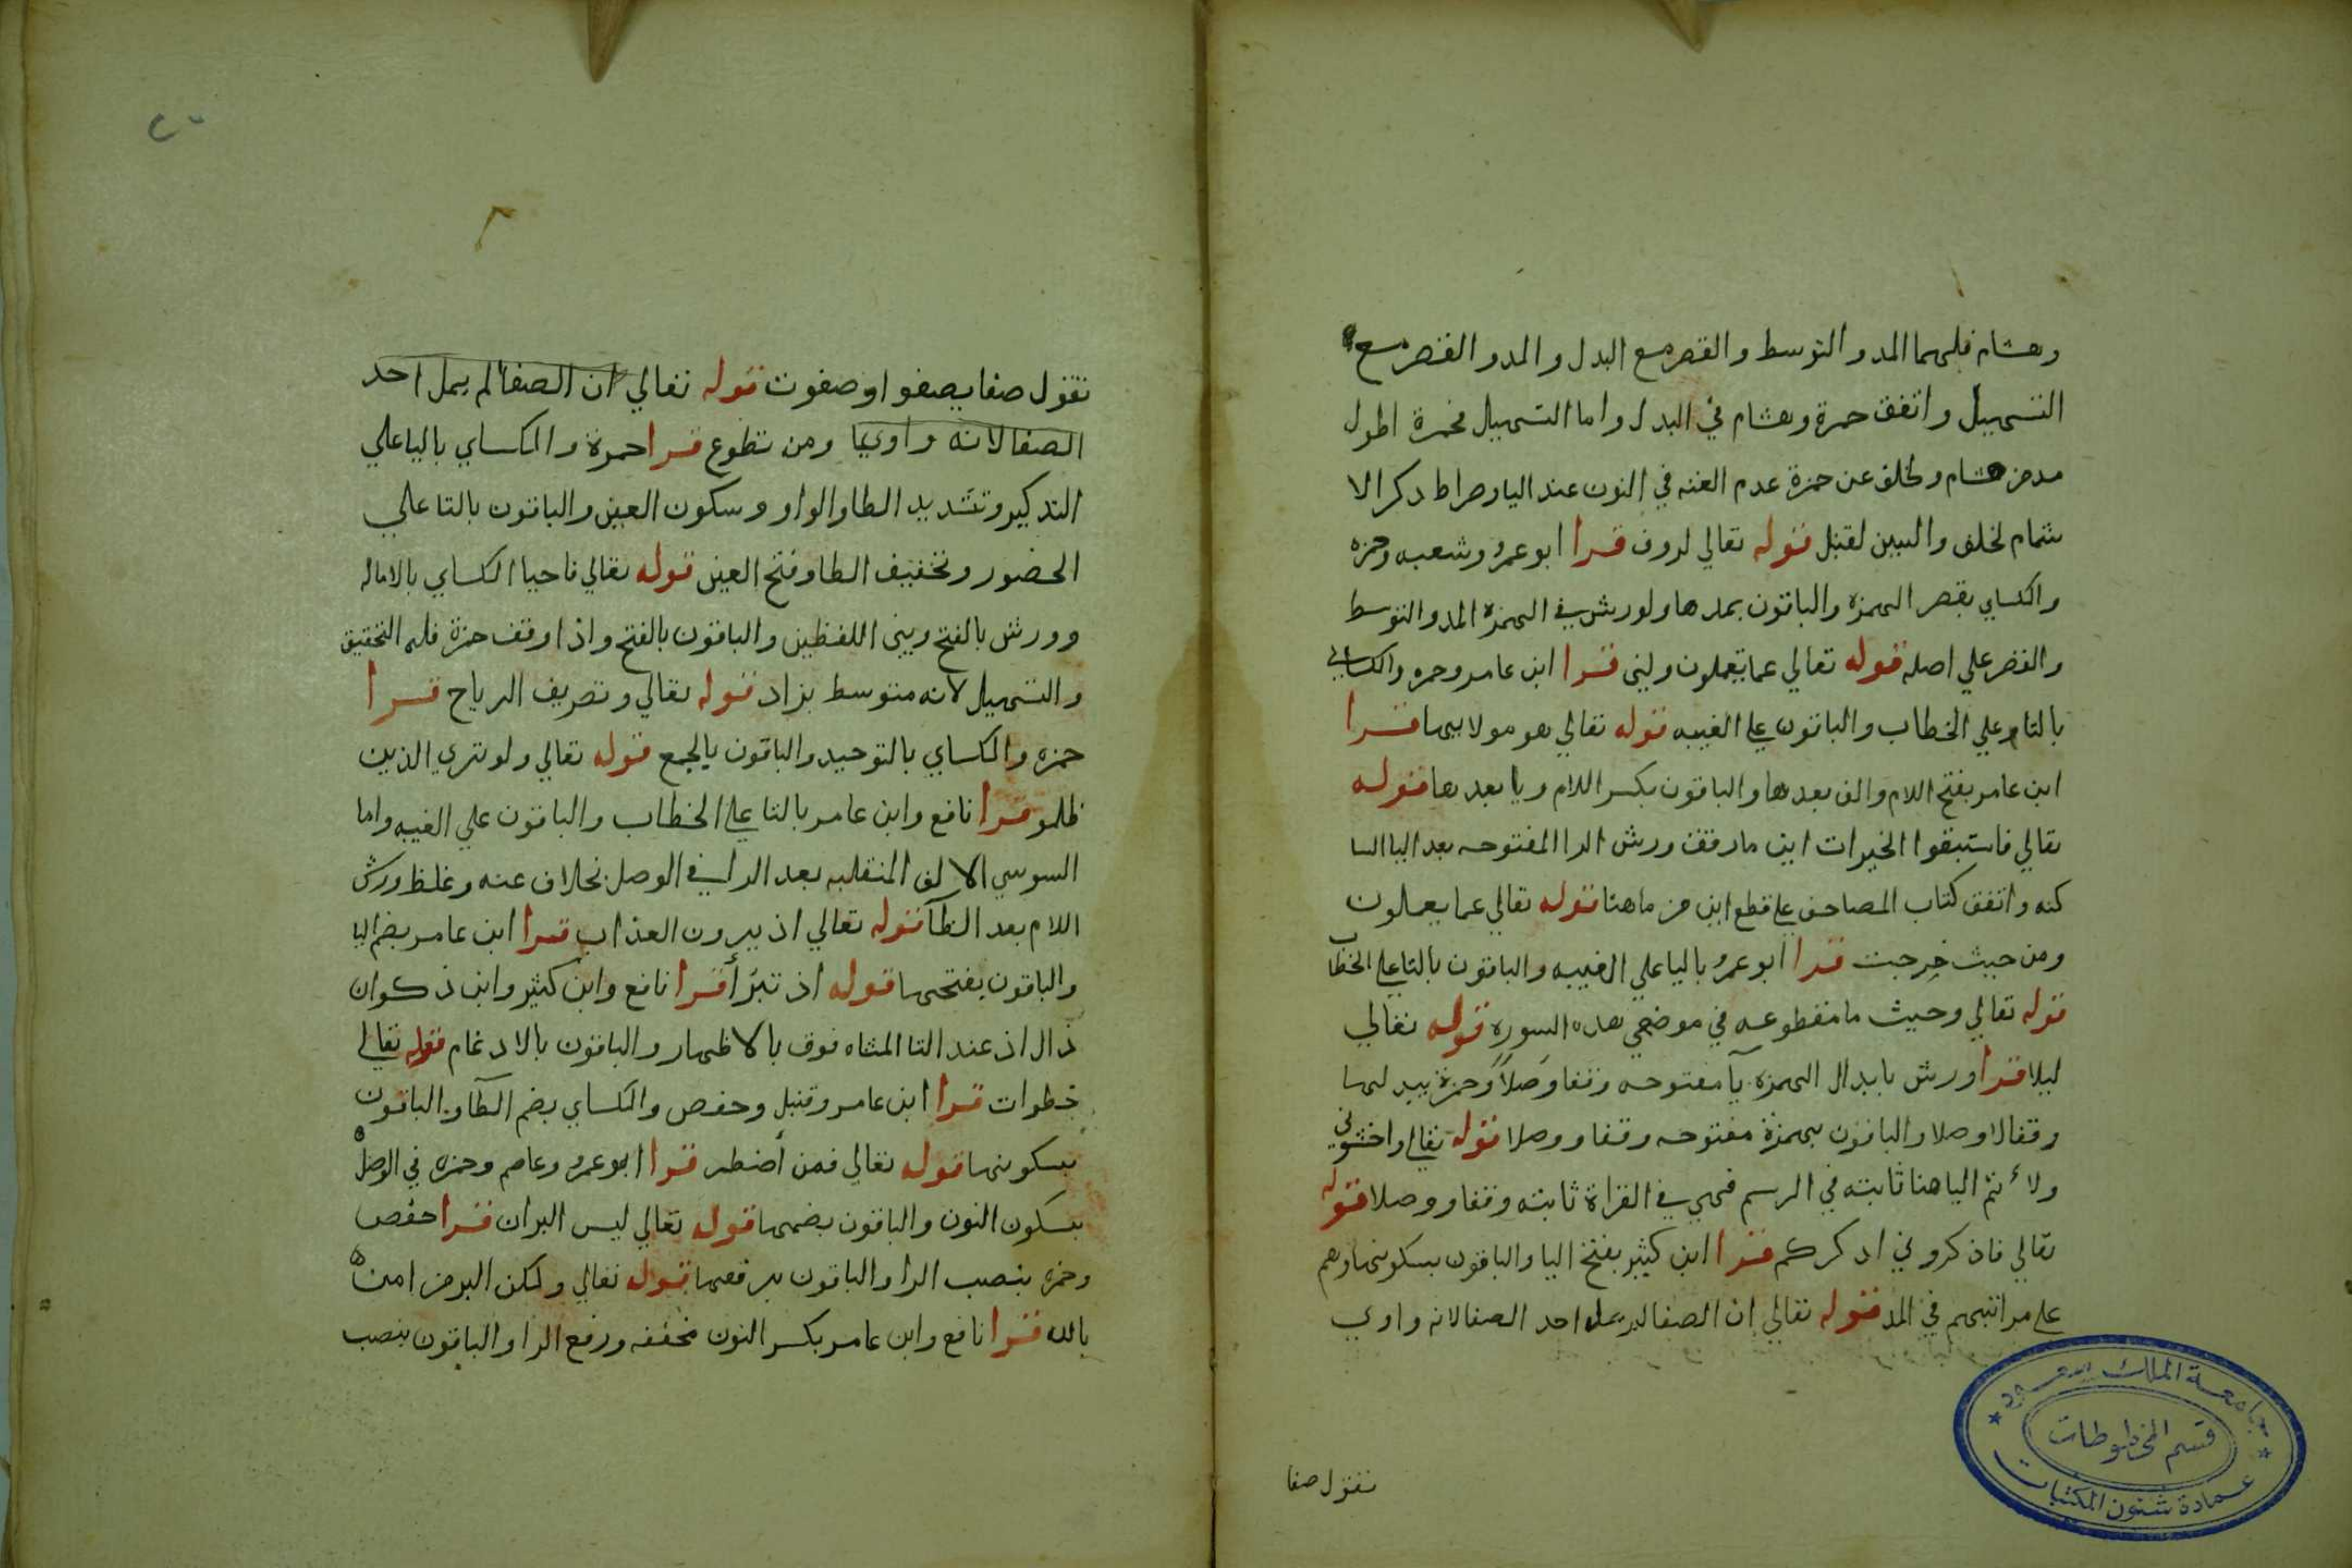 وهشام فلهما المد والتوسط والقصر مع البدل والمد والقصر مع
التسهيل واتفق حمزة وهشام في البدل واما التسهيل فحمزة اطول
مد من هشام ولخلف عن حمزة عدم الغنه في النون عند اليا وصراط ذكر الا
شمام لخلف والسين لقنبل قوله تعالي لروف قرا ابو عمرو وشعبه وحمزه
والكساي بقصر الهمزة والباقون بمدها ولورش في الهمزة المد والتوسط
والقصر علي اصله قوله تعالي عما يعملون ولين قرا ابن عامر وحمزه والكساي
بالتا علي الخطاب والباقون علي الغيبه قوله تعالي هو موليها قرا
ابن عامر بفتح اللام والف بعدها والباقون بكسر اللام ويا بعدها قوله
تعالي فاستبقوا الخيرات اين ما رقق ورش الرا المفتوحه بعد اليا السا
كنه واتفق كتاب المصاحف علي قطع اين من ما هنا قوله تعالي عما يعملون
ومن حيث خرجت قرا ابو عمرو باليا علي الغيبه والباقون بالتا علي الخطاب
قوله تعالي وحيث ما مقطوعه في موضعي هذه السورة قوله تعالي
ليلا قرا ورش بابدال الهمزة يآ مفتوحه وقفا وصلاً وحمزة يبدلها
وقفا لا وصلا والباقون بهمزة مفتوحه وقفا ووصلا قوله تعالي واخشوني
ولأتم اليا هنا ثابته في الرسم فهي في القراة ثابته وقفا ووصلا قوله
تعالي فاذكروني اذكركم قرا ابن كثير بفتح اليا والباقون بسكونها وهم
علي مراتبهم في المد قوله تعالي ان الصفا لم يمله احد الصفا لانه واوي
نقول صفا
جامعة الملك سعود
قسم المخطوطات
عمادة شئون المكتبات
٢٠
نقول صفا يصفو او صفوت قوله تعالي ان الصفا لم يمل احد
الصفا لانه واويا ومن تطوع قرا حمزة والكساي باليا علي
التذكير وتشديد الطا والواو وسكون العين والباقون بالتا علي
الحضور وتخفيف الطا وفتح العين قوله تعالي فاحيا الكساي بالاماله
وورش بالفتح وبين اللفظين والباقون بالفتح واذا وقف حمزة فله التحقيق
والتسهيل لانه متوسط بزاد قوله تعالي وتصريف الرياح قرا
حمزه والكساي بالتوحيد والباقون بالجمع قوله تعالي ولو تري الذين
ظلمو قرا نافع وابن عامر بالتا علي الخطاب والباقون علي الغيبه واما
السوسي الالف المنقلبه بعد الرا في الوصل بخلاف عنه وغلظ ورش
اللام بعد الظآ قوله تعالي اذ يرون العذاب قرا ابن عامر بضم اليا
والباقون بفتحها قوله اذ تبرأ قرا نافع وابن كثير وابن ذكوان
ذال اذ عند التا المثناه فوق بالاظهار والباقون بالادغام قوله تعالي
خطوات قرا ابن عامر وقنبل وحفص والكساي بضم الطآ والباقون
بسكونها قوله تعالي فمن أضطر قرا ابو عمرو وعاصم وحمزه في الوصل
بسكون النون والباقون بضمها قوله تعالي ليس البر ان قرا حفص
وحمزه بنصب الرا والباقون برفعها قوله تعالي ولكن البر من امن
بالله قرا نافع وابن عامر بكسر النون مخففه ورفع الرا والباقون بنصب